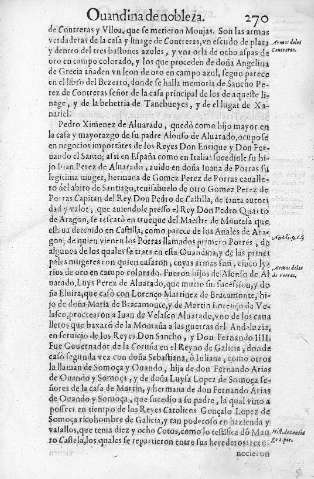 Ouandina de nobleza. 270
de Contreras y Vlloa, que se metieron Monjas. Son las armas
verdaderas de la casa y linage de Contreras, vn escudo de plata
y dentro del tres bastones azules, y vna orla de ocho aspas de
oro en campo colorado, y los que proceden de doña Angelina
de Grecia añaden vn leon de oro en campo azul, segun parece
en el libro del Bezerro, donde se halla memoria de Sancho Pe-
rez de Contreras señor de la casa principal de los de aqueste li-
nage, y de la behetria de y del lugar de
Pedro Ximenez de Aluarado, quedò como hijo mayor en
la casa y mayorazgo de su padre Alonso de Aluarado, ocupose
en negocios importantes de los Reyes Don Enrique y Don Fer-
nando el Santo, assi en España como en Italia: sucediole su hi-
jo Iuan Perez de Aluarado, auido en doña Iuana de Porras su
legitima muger, hermana de Gomez Perez de Porras caualle-
ro del abito de Santiago, tentabuelo de otro Gomez Perez de
Porras Capitan del Rey Don Pedro de Castilla, de tanta autori
dad y valor, que auiendole preso el Rey Don Pedro Quarto
de Aragon, se rescatò en trueque del Maestre de Montesa que
estaua detenido en Castilla, como parece de los Anales de Ara-
gon, de quien vienen los Porras llamados primero Porres, de
algunos de los quales se trata en esta Ouandina, y de las princi
pales mugeres con quien casaron, cuyas armas son, cinco
de oro en campo colorado. Fueron hijos de Alonso de Al
uarado, Luys Perez de Aluarado, que murio sin sucession, y do
ña Eluira, que casò con Lorenço Martinez de Bracamonte, hi-
jo de doña Maria de Bracamonte, y de Martin Lorenço de Ve-
lasco, procrearon a Iuan de Velasco Aluarado, vno de los caua
lleros que baxarõ de la Montaña a las guerras del Andaluzia,
en seruicio de los Reyes Don Sancho, y Don Fernando IIII.
Fue Gouernador de la Coruña en el Reyno de Galicia, donde
casò segunda vez con doña Sebastiana, ò Iuliana, como otros
la llaman de Somoça y Ouando, hija de don Fernando Arias
de Ouando y Somoça, y de doña Luysa Lopez de Somoça se-
ñores de la casa de Martin, y hermana de don Fernando Arias
de Ouando y Somoça, que sucedio a su padre, la qual vino a
posseer en tiempo de los Reyes Catolicos Gonçalo Lopez de
Somoça ricohombre de Galicia, y tan poderoso en hazienda y
vassallos, que tenia diez y ocho Cotos, como lo testifica dõ Mau
ro Castela, los quales se repartieron entre sus herederos:
necieron
Armas delos
Contreras.
Armas delos
de Porras.